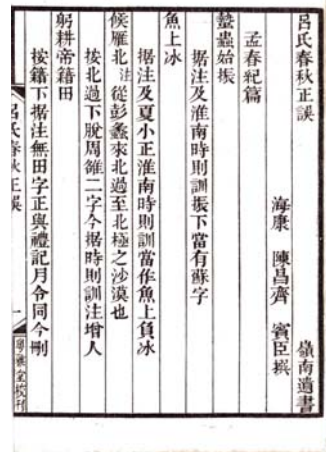 呂氏春秋正誤　嶺南遺書
海康　陳昌齊　賓臣撰
孟春紀篇
蟄蟲始振
据注及淮南時則訓振下當有蘇字
魚上冰
据注及夏小正淮南時則訓當作魚上負冰
候雁北 注從彭蠡來北過至北極之沙漠也
按北過下脫周雒二字今据時則訓注增入
躬耕帝籍田
按籍下据注無田字正與禮記月令同今刪
呂氏春秋正誤　一　粵雅堂校刊